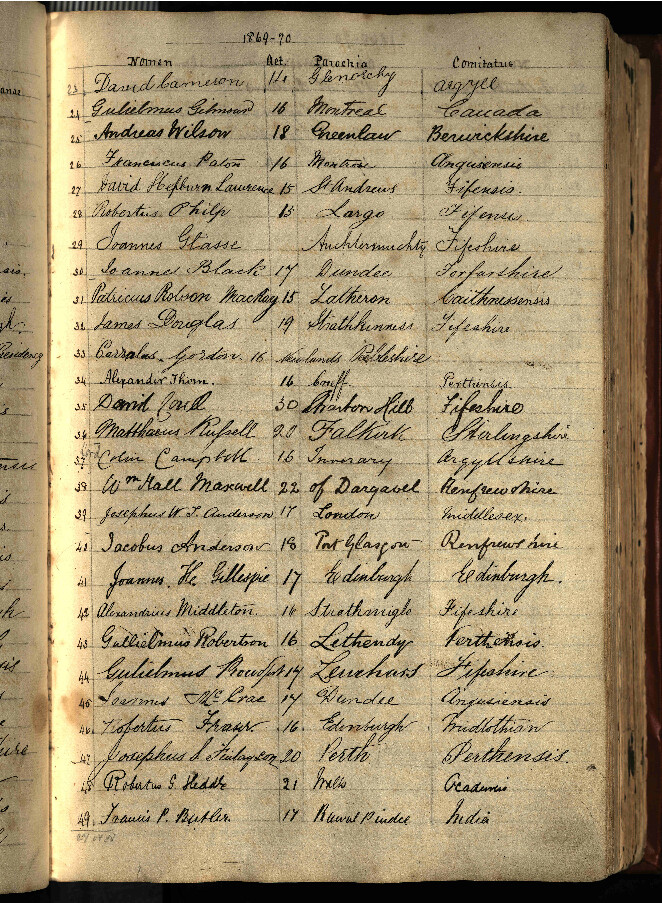 1869-70
Nomen Aet. Parochia Comitatus
23 David Cameron 14 Glenorchy Argyll
24 Gulielmus Gilmour 16 Montreal Canada
25 Andreas Wilson 18 Greenlaw Berwickshire
26 Franciscus Paton 16 Montrose Angusensis
27 David Hepburn Lawrence 15 St Andrews Fifensis.
28 Robertus Philp 15 Largo Fifensis
29 Joannes Glasse Auchtermuchty Fifeshire
30 Joannes Black 17 Dundee Forfarshire
31 Patricius Robson Mackay 15 Latheron Caithnessensis
32 James Douglas 19 Strathkinness Fifeshire
33 Carolus Gordon 16 Newlands Peebleshire
34 Alexander Thom. 16 Crieff Perthensis
35 David 30 Hill Fifeshire
36 Matthaeus Russell 20 Falkirk Stirlingshire
37 Colin Campbell 16 Inverary Argyllshire
38 Wm Hall Maxwell 22 of Dargavel Renfrewshire
39 Josephus W. T. Anderson 17 London Middlesex.
40 Jacobus Anderson 18 Port Glasgow Renfrewshire
41 Joannes Hc Gillespie 17 Edinburgh Edinburgh.
42 Alexandrius Middleton. 16 Strathmiglo Fifeshire
43 Gullielmus Robertson 16 Lethendy Perthensis.
44 Gulielmus 17 Leuchars Fifeshire
45 Joannes McCrae 17 Dundee Angusiensis
46 Robertus Fraser. 16. Edinburgh Midlothian
47 Josephus S. Finlayson 20 Perth Perthensis.
48 Robertus G. Heddle 21
49. Francis P. Butler. 17 Rawul Pindee India